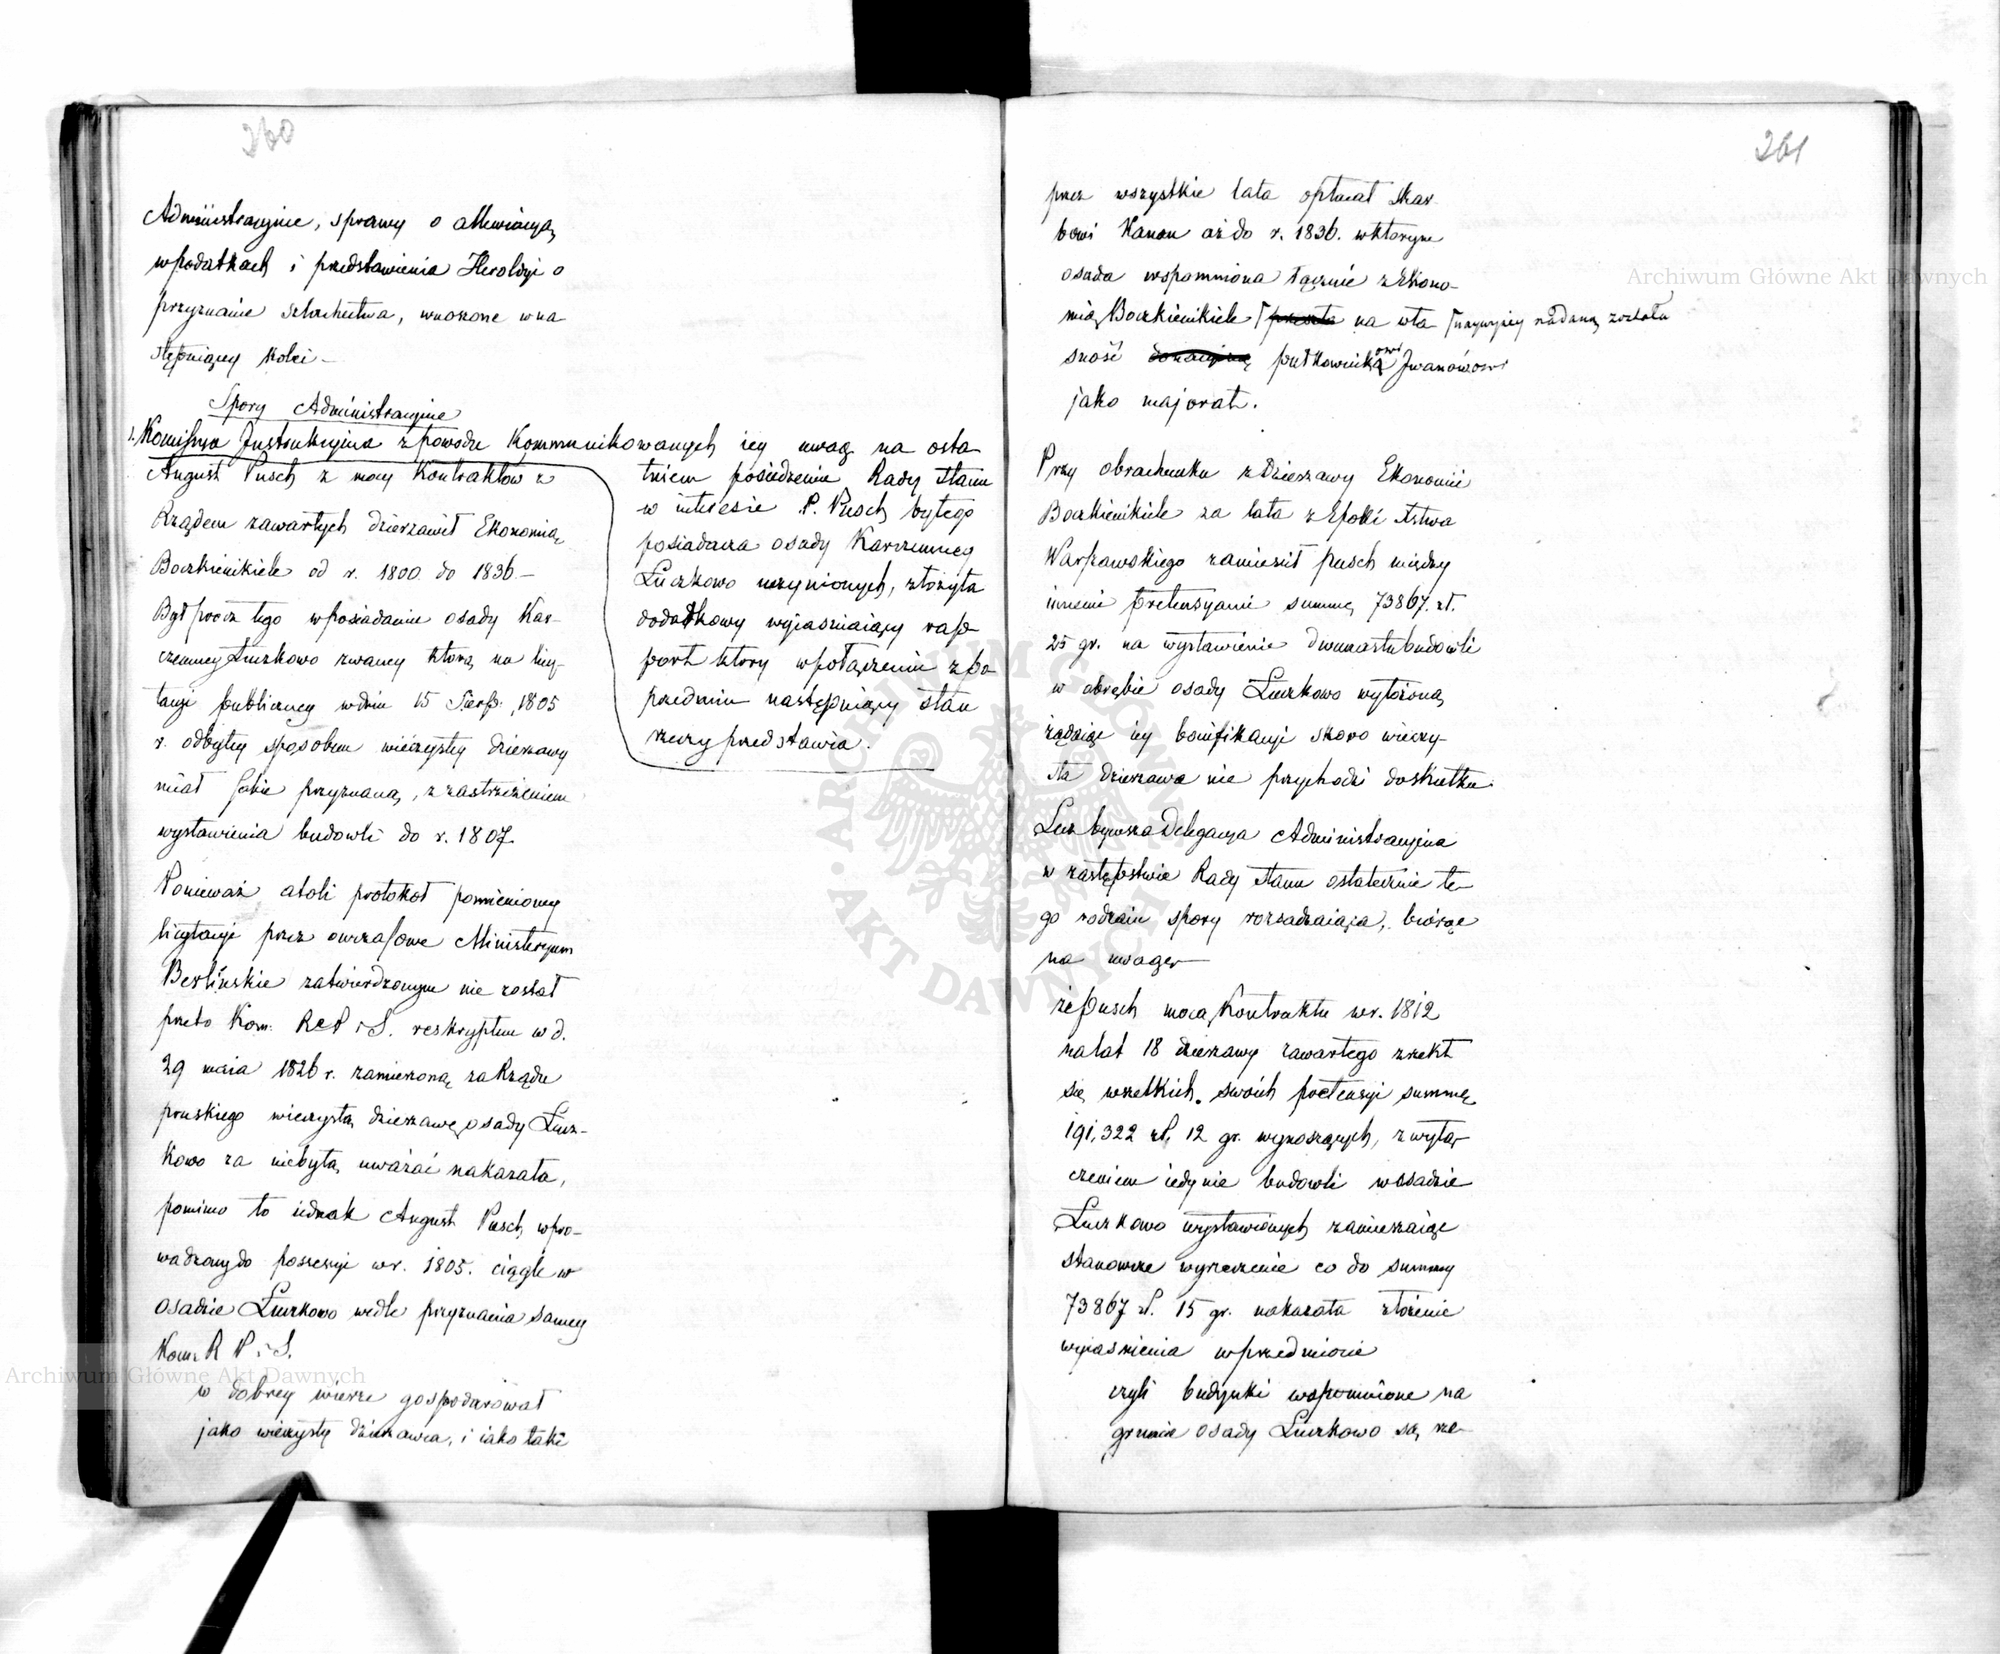 260
Administracyjne, sprawy o allewiacyą
w podatkach i przedstawienia Heroldyi o
przyznanie szlachectwa, wnoszone w na
stępuiącey kolei –
Spory Administracyjne
1. Kommissya Instrukcyjna z powodu Kommunikowanych iey uwag na osta
tniem posiedzeniu Rady Stanu
w interesie P. Pusch byłego
posiadacza osady Karczemney
Luczkowo uczynionych, złożyła
dodatkowy wyiaśniaiący rap
port który w połączeniu z po
przednim następuiący stan
rzeczy przedstawia.
August Pusch z mocy Kontraktów z
Rządem zawartych dzierzawił Ekonomią
Boczkieinikiele od r. 1800 do 1836 –
Był prócz tego w posiadaniu osady Kar-
czemney Luczkowo zwaney którą na licy-
tacyi publiczney w dniu 15 Sierp. 1805
r. odbytey sposobem wieczystey dzierzawy
miał sobie przyznaną, z zastrzeżeniem
wystawienia budowli do r. 1807.
Ponieważ atoli protokoł pomienioney
licytacyi przez owczasowe Ministeryum
Berlińskie zatwierdzonym nie został
przeto Kom: R P i S. reskryptem w d.
29 maia 1826 r. zamierzoną za Rządu
pruskiego wieczystą dzierzawę osady Lucz-
kowo za niebyłą uważać nakazała,
pomimo to iednak August Pusch wpro-
wadzony do possesyi w r. 1805. ciągle w
osadzie Luczkowo wedle przyznania samey
Kom: R P i S.
w dobrey wierze gospodarował
jako wieczysty dzierzawca, i iako taki
261
przez wszystkie lata opłacał Skar-
bowi Kanon aż do r. 1836. w którym
osada wspomniona łącznie z Ekono-
mią Boczkieinikiele na wła nadaną została
sność pułkownikowi Iwanówowi
jako majorat.
Przy obrachunku z dzierzawy Ekonomii
Boczkieinikiele za lata z Epoki Xstwa
Warszawskiego zamieścił Pusch między
innemi pretensyami summę 73867. zł.
25 gr. na wystawienie dwunastu budowli
w obrębie osady Luczkowo wyłożoną
żądaiąc iey bonifikacyi skoro wieczy-
sta dzierzawa nie przychodzi do skutku.
Lecz bywsza Delegacya Administracyjna
w zastępstwie Rady Stanu ostatecznie te-
go rodzaiu spory rozsądzaiąca, biorąc
na uwagę –
że Pusch mocą Kontraktu w r. 1812
na lat 18 dzierzawy zawartego zrzekł
się wszelkich swoich pretensyi summę
191,322 zł. 12 gr. wynoszących, z wyłą-
czeniem iedynie budowli w osadzie
Luczkowo wystawionych zamieszaiąc
stanowcze wyrzeczenie co do summy
73867 zł. 15 gr. nakazała złożenie
wyiaśnienia w przedmiocie
czyli budynki wspomnione na
gruncie osady Luczkowo są rze-
Archiwum Główne Akt Dawnych
Archiwum Główne Akt Dawnych
ARCHIWUM GŁÓWNE AKT DAWNYCH